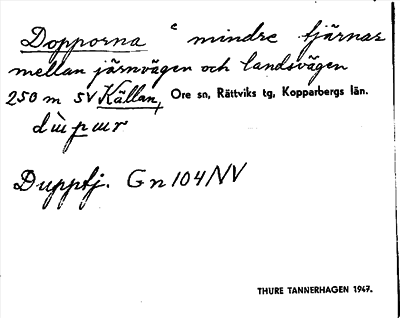 Dopporna " mindre tjärnar
mellan järnvägen och landsvägen
250 m SV Källan, Ore sn, Rättviks tg, Kopparbergs län.
Dupptj. Gn 104 NV
THURE TANNERHAGEN 1947.